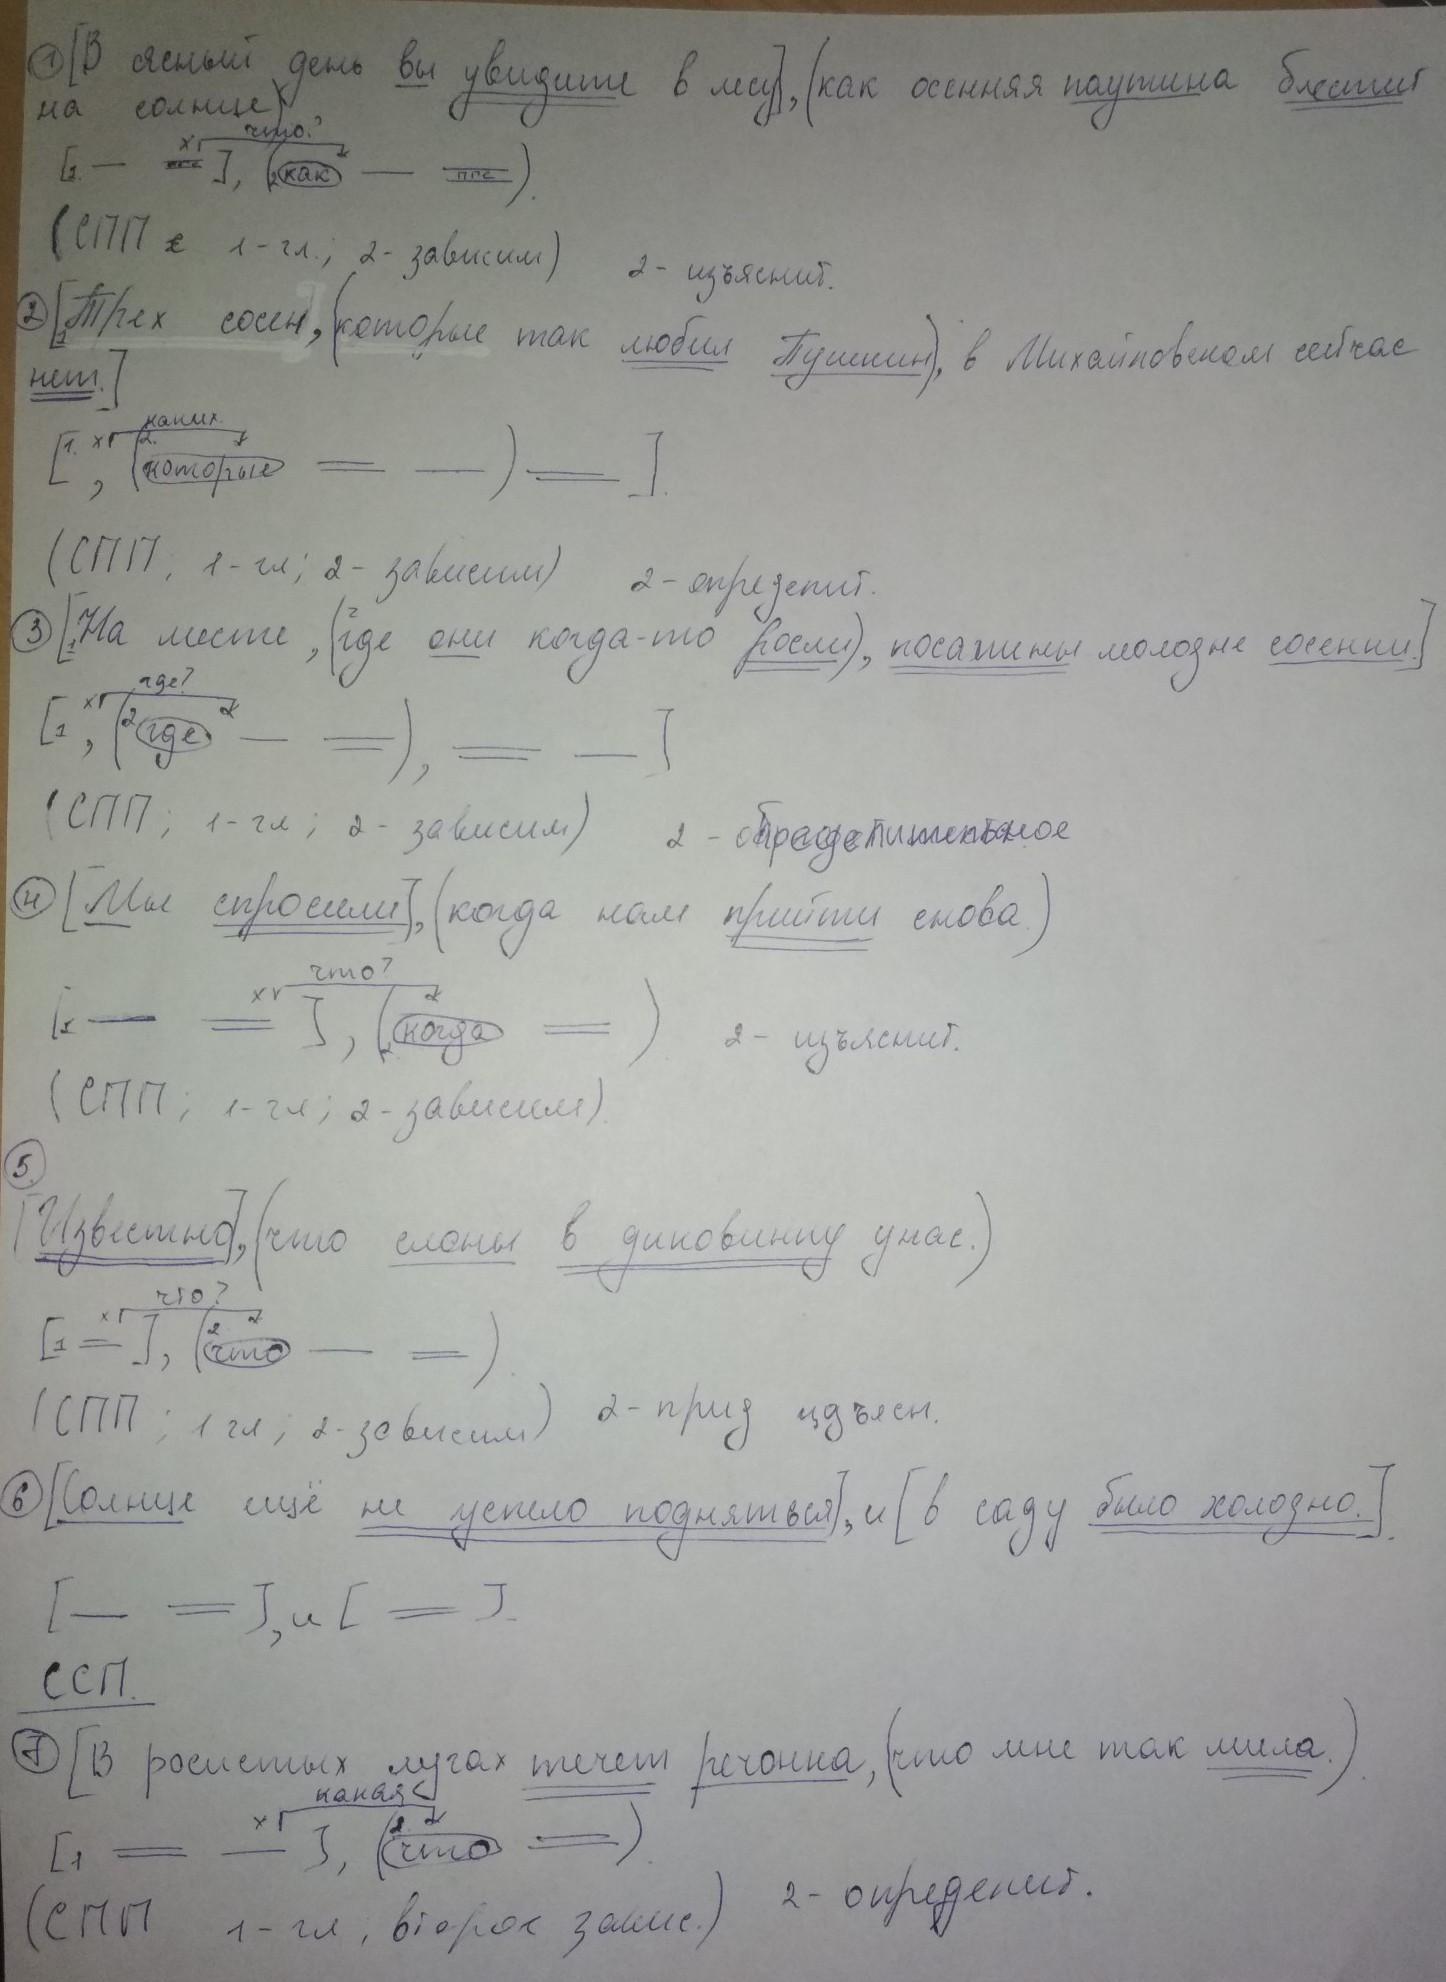 ① [В ясный день вы увидите в лесу], (как осенняя паутина блестит
на солнце)
что?
[1. — пгс ], (2 как — пгс ).
(СПП 1-гл.; 2-зависим) 2- изъяснит.
② [1 Трех сосен, (которые так любил Пушкин), в Михайловском сейчас
нет.]
каких.
[1. х , (2. которые = — ) = ].
(СПП, 1-гл; 2-зависим) 2-определит.
③ [1 На месте, (2 где они когда-то росли), посажены молодые сосенки.]
где?
[1 х , (2 где — = ), = — ]
(СПП; 1-гл; 2-зависим) 2-
④ [Мы спросили], (когда нам прийти снова.)
что?
[1 — х = ], (2 когда = ). 2- изъяснит.
(СПП; 1-гл; 2-зависим).
5.
[Известно], (что слоны в диковинку у нас.)
что?
[1 х = ], (2 что — = ).
(СПП; 1 гл; 2-зависим) 2-прид изъясн.
⑥ [Солнце ещё не успело подняться], и [в саду было холодно.].
[ — = ], и [ = ].
ССП.
⑦ [В росистых лугах течет речонка, (что мне так мила.).
какая
[1 = х — ], (2 что = ).
(СПП 1-гл, второе завис.) 2-определит.